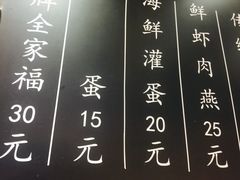 牌全家福30元
蛋15元
海鲜灌蛋20元
鲜虾肉燕25元